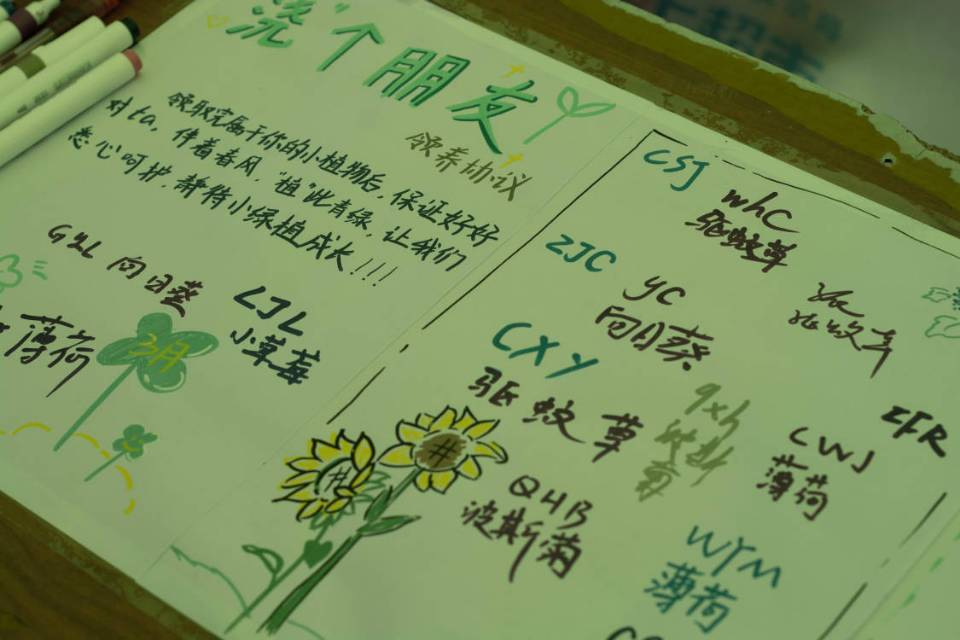 浇"个朋友
领养协议
领取完属于你的小植物后,保证好好
对ta,伴着春风,"植"此青绿,让我们
悉心呵护,静待小绿植成长!!!
GYL 向日葵
LJL
小草莓
薄荷
3月
CSJ
whC
驱蚊草
ZJC
yc
向日葵
CXY
驱蚊草
QHB
波斯菊
CWJ
薄荷
ZFR
WYM
薄荷